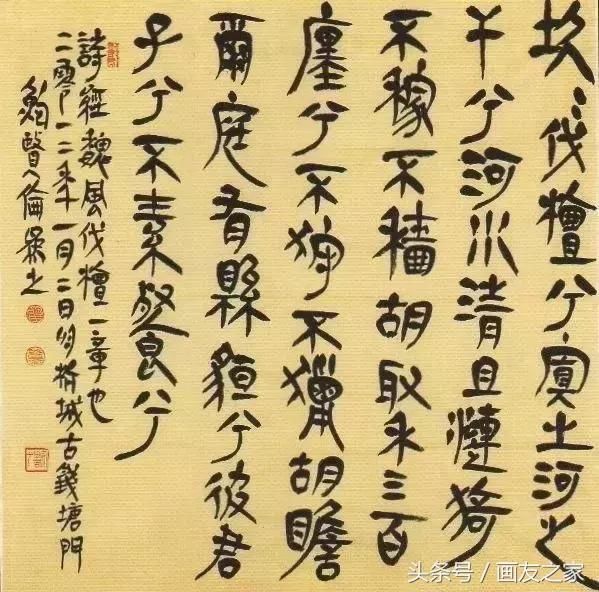 坎〻伐檀兮寘之河之
干兮河水清且漣猗
不稼不穡胡取禾三百
廛兮不狩不獵胡瞻
爾庭有縣貆兮彼君
子兮不素餐兮
詩經魏風伐檀一章也
二零一二年十一月二日於城古錢塘門
鮑賢倫彔之
头条号 / 画友之家